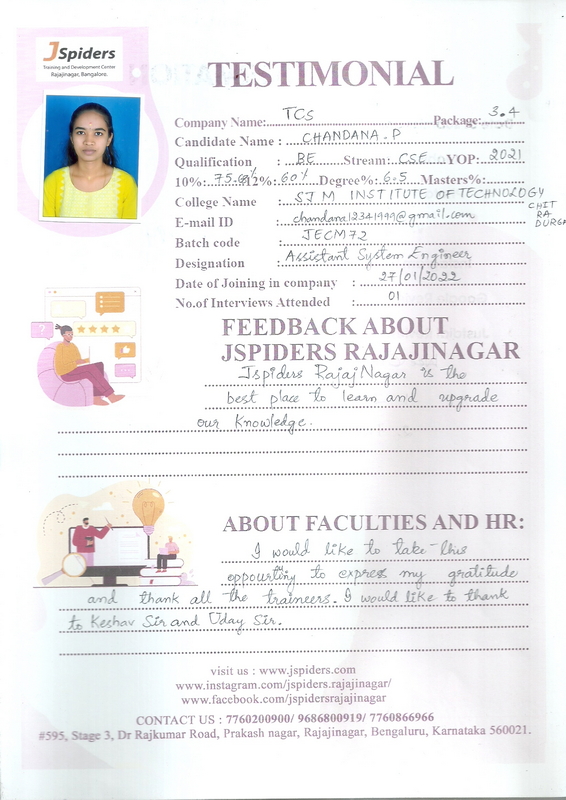 JSpiders
Training and Development Center
Rajajinagar, Bangalore.
TESTIMONIAL
Company Name: TCS Package: 3.4
Candidate Name : CHANDANA.P
Qualification : BE Stream: CSE YOP: 2021
10%: 75.6% 12%: 60% Degree%: 6.5 Masters%:
College Name : SJM INSTITUTE OF TECHNOLOGY
CHIT
RA
DURGA
E-mail ID : chandana12341999@gmail.com
Batch code : JECM72
Designation : Assistant System Engineer
Date of Joining in company : 27/01/2022
No.of Interviews Attended : 01
FEEDBACK ABOUT
JSPIDERS RAJAJINAGAR
Jspiders RajajNagar is the
best place to learn and upgrade
our knowledge.
ABOUT FACULTIES AND HR:
I would like to take this
oppourtiny to express my gratitude
and thank all the traineers. I would like to thank
to Keshav Sir and Uday Sir.
visit us : www.jspiders.com
www.instagram.com/jspiders.rajajinagar/
www.facebook.com/jspidersrajajinagar
CONTACT US : 7760200900/ 9686800919/ 7760866966
#595, Stage 3, Dr Rajkumar Road, Prakash nagar, Rajajinagar, Bengaluru, Karnataka 560021.